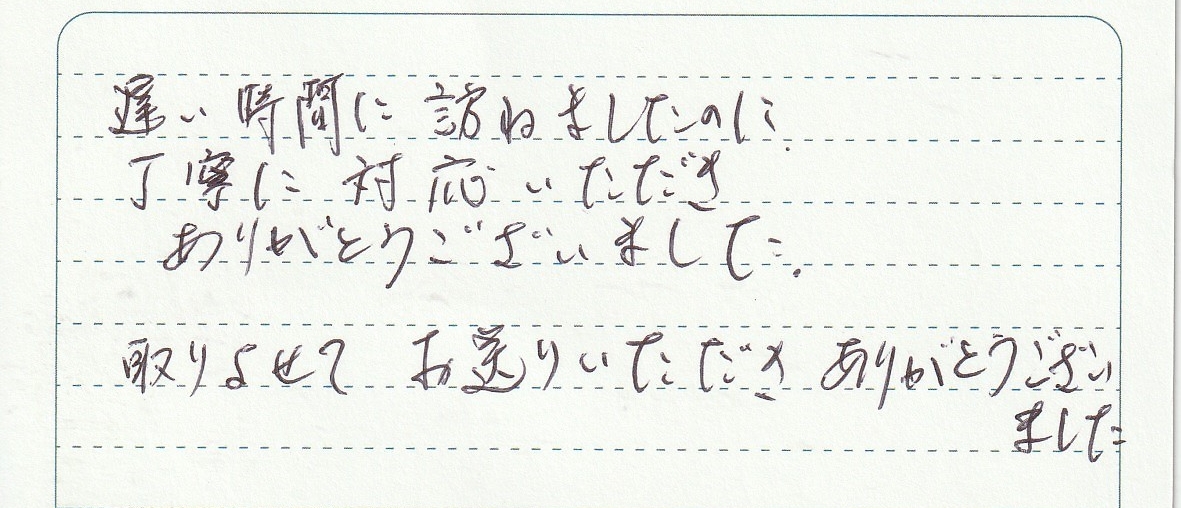 遅い時間に訪ねましたのに、
丁寧に対応いただき
ありがとうございました.
取りよせて お送りいただき ありがとうござい
ました